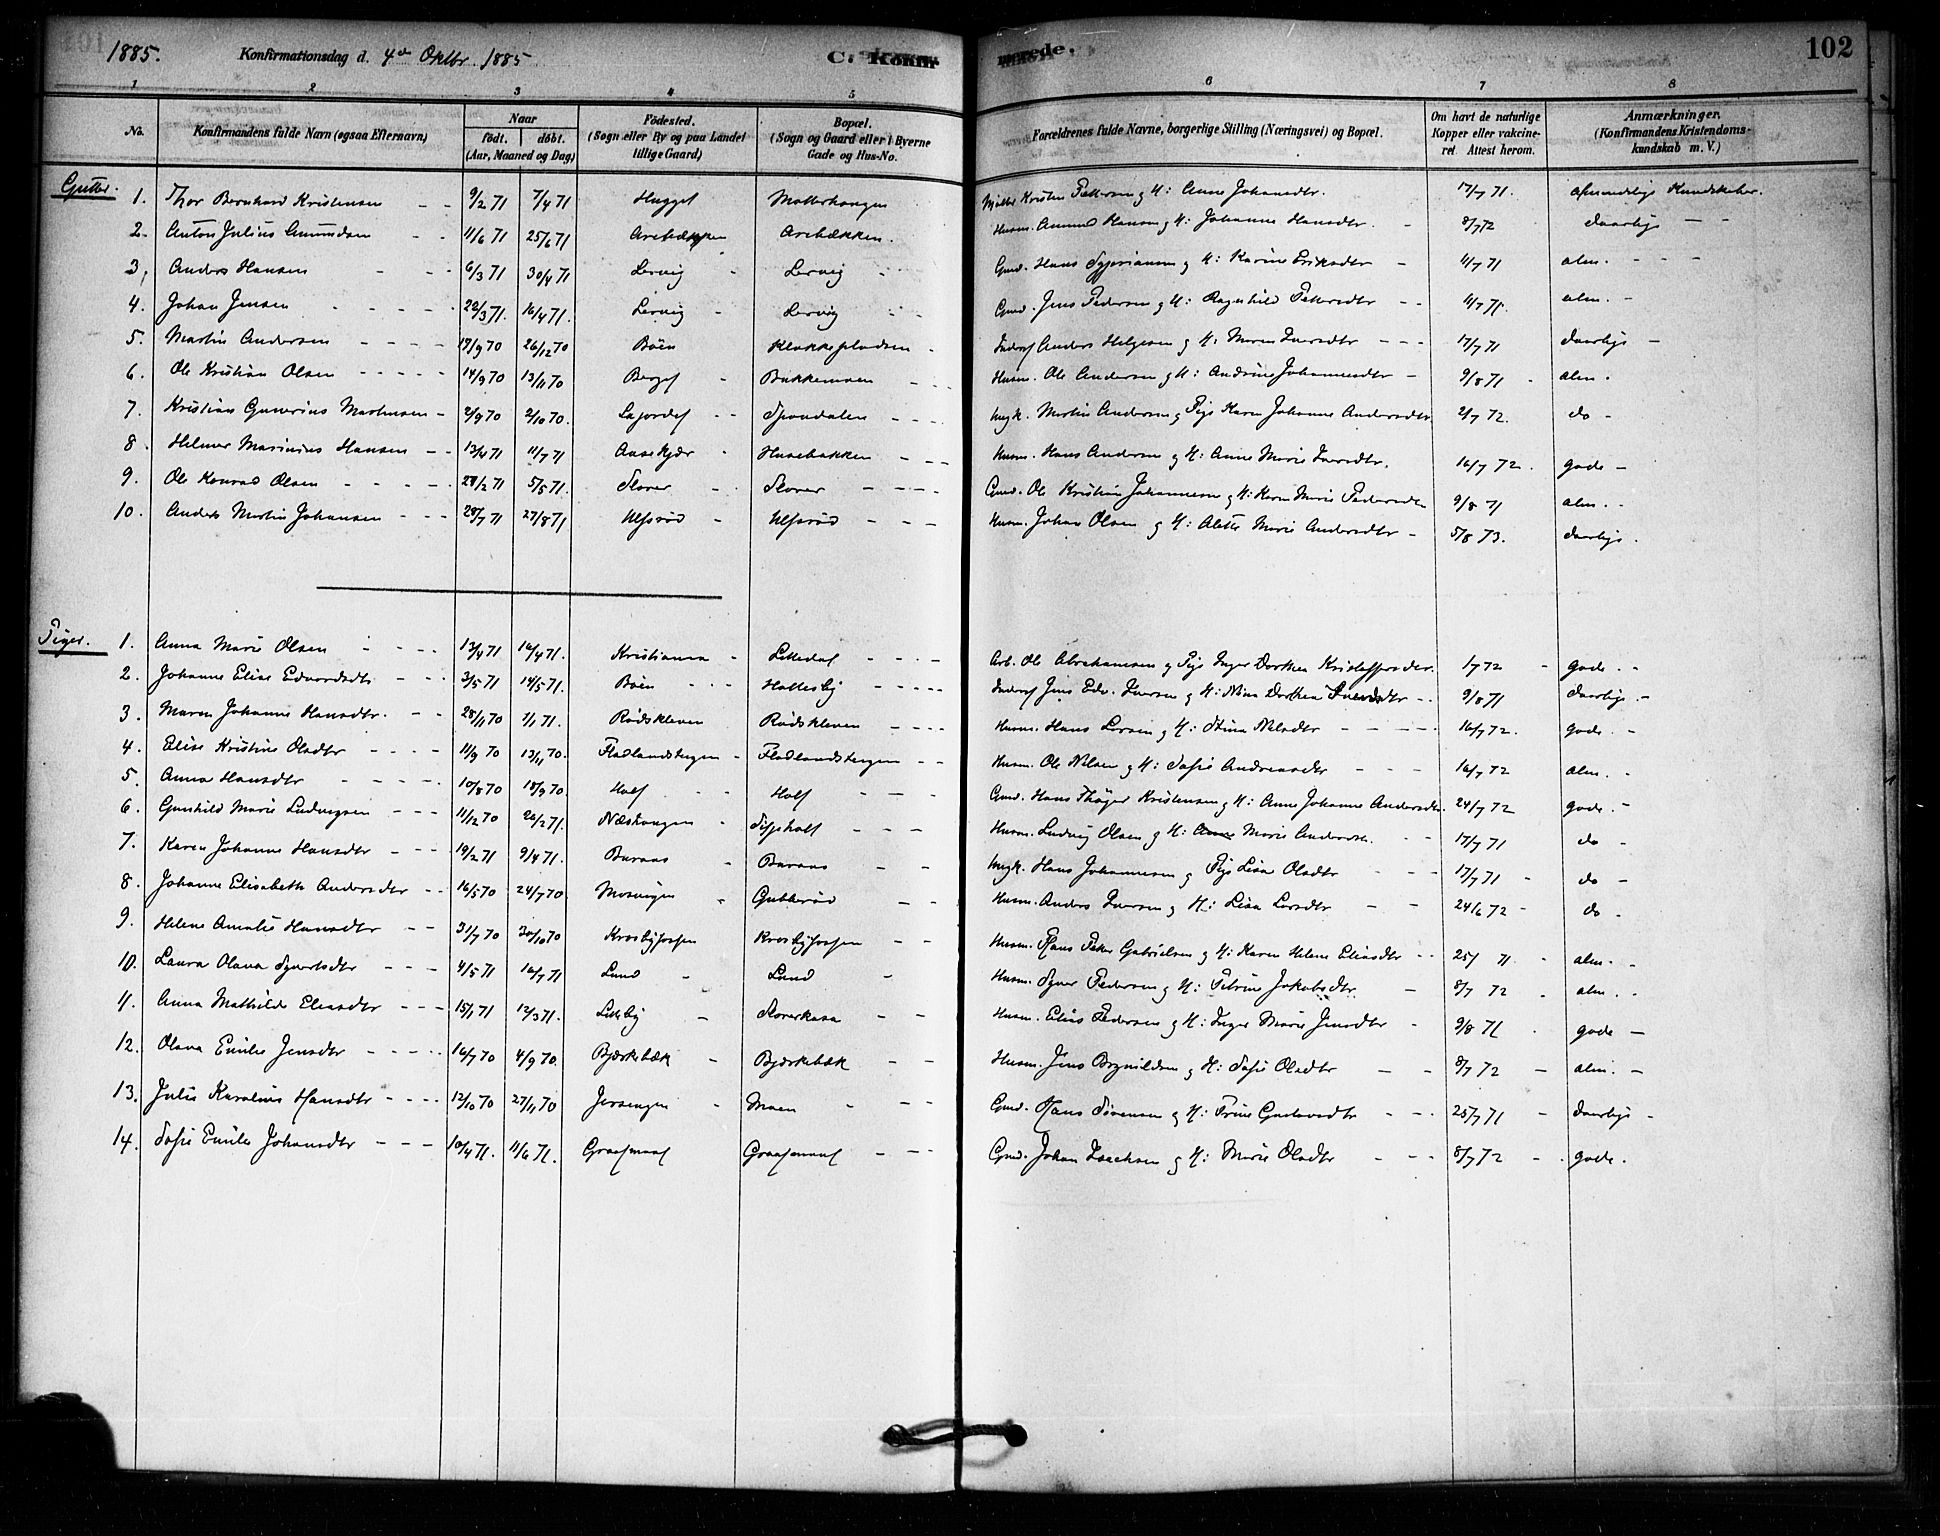 1885. Konfirmationsdag d. 4de Oktbr. 1885 C. Konfirmerede. 102
1 2 3 4 5 6 7 8
No. Konfirmandens fulde Navn (ogsaa Efternavn) Naar født. døbt. (Aar, Maaned og Dag) Födested. (Sogn eller By og paa Landet tillige Gaard) Bopæl. (Sogn og Gaard eller i Byerne Gade og Hus-No. Forældrenes fulde Navne, borgerlige Stilling (Næringsvei) og Bopæl. Om havt de naturlige Kopper eller vakcineret. Attest herom. Anmærkninger. (Konfirmandens Kristendomskundskab m. V.)
Gutter.
1. Thor Bernhard Kristensen 9/2 71 7/4 71 Hugget Kristen Pettersen og H: Anne Johansdtr. 17/7 71.
2. Anton Julius Amundsen 11/6 71 25/6 71 Arebækken Arebækken. Husm. Amund Hansen og H: Johanne Hansdtr. 8/7 72 daarlige
3. Anders Hansen 6/3 71 30/4 71 Lervig Lervig Gmd. Hans Syveriansen og H: Karine Eriksdtr 11/7 71 alm.
4. Johan Jensen 22/3 71. 16/4 71. Lervig Lervig Gmd. Jens Pedersen og H: Ragnhild Pettersdtr 11/7 71. alm.
5. Martin Andersen 19/9 70 26/12 70 Böen Klokkepladsen Anders Helgesen og H: Maren Iversdtr 17/7 71 daarlige
6. Ole Kristian Olsen 14/9 70 13/11 70 Berget Bakkemoen Husm. Ole Andersen og H: Andrine Johannesdtr 9/8 71 alm.
7. Kristian Gunerius Martinsen 2/9 70 2/10 70. Spondalen Ungk. Martin Andersen og Pige Karen Johanne Andersdtr 2/7 72. do
8. Helmer Marinius Hansen 13/4 71 11/7 71 Aasekjær Husebakken Husm. Hans Andersen og H: Anne Marie Iversdtr. 16/7 72. gode
9. Ole Konrad Olsen 28/2 71 5/5 71. Slorer Slorer Gmd. Ole Kristian Johannesen og H: Karen Marie Pedersdtr 9/8 71 alm.
10. Anders Martin Johansen 28/7 71 27/8 71 Ulfsrød Ulfsrød Husm. Johan Olsen og H: Alette Marie Andersdtr 5/8 73. daarlige.
Piger.
1. Anna Marie Olsen 13/4 71 16/4 71. Kristiania Arb. Ole Abrahamsen og Pige Inger Dorthea Kristoffersdtr. 1/7 72 gode
2. Johanne Elise Edvardsdtr 3/5 71 14/5 71. Böen Holtesby Jens Edv. Iversen og H: Dorthea Svendsdtr 9/8 71 daarlige.
3. Maren Johanne Hansdtr. 28/11 70 1/1 71. Rödskleven Rödskleven Husm. Hans Larsen og H: Stina Nelsdtr 16/7 72. gode.
4. Elise Kristine Olsdtr 11/9 70 13/11 70. Fladlandstangen Fladlandstangen Husm. Ole Nilsen og H: Sofie Andreasdtr 16/7 72 alm.
5. Anna Hansdtr 10/8 70 18/9 70. Holt Holt Gmd. Hans Thöger Kristensen og H: Anne Johanne Andersdtr. 24/7 72 gode.
6. Gunhild Marie Ludvigsen 11/12 70 26/2 71. Næstangen Husm. Ludvig Olsen og H: Marie Andersdtr. 17/7 71 do
7. Karen Johanne Hansdtr 19/2 71 9/4 71. Buraas Buraas Ungk. Hans Johannesen og Pige Lisa Olsdtr 17/7 71 do
8. Johanne Elisabeth Andersdtr 16/5 70 24/7 70 Mosevigen Gubberød Husm. Anders Iversen og H: Lisa Larsdtr 24/6 72 do.
9. Helene Amalie Hansdtr 31/7 70 30/10 70 Krosbyfossen Krosbyfossen Husm. Hans Peter Gabrielsen og H: Karen Helene Eliasdtr 25/ 71 alm.
10. Laura Olava Syvertsdtr 4/5 71 16/7 71 Lund Lund Husm. Syver Pedersen og H: Petrine Jakobsdtr 8/7 72 alm.
11. Anna Mathilde Eliasdtr 15/1 71 12/3 71. Lilleby Slorerkasa Husm. Elias Pedersen og H: Inger Marie Jensdtr 9/8 71 gode
12. Olava Emilie Jensdtr 16/7 70 4/9 70. Bjærkebæk Bjærkebæk Husm. Jens Brynildsen og H: Sofie Olsdtr 8/7 72 alm.
13. Julie Karoline Hansdtr 12/10 70 27/11 70 Jersengen Moen Gmd. Hans Sörensen og H: Trine Gulovsdtr 25/7 71 daarlige
14. Sofie Emilie Johansdtr 10/4 71. 11/6 71. Graasmaal Graasmaal Gmd. Johan Isachsen og H: Marie Olsdtr 8/7 72 gode.